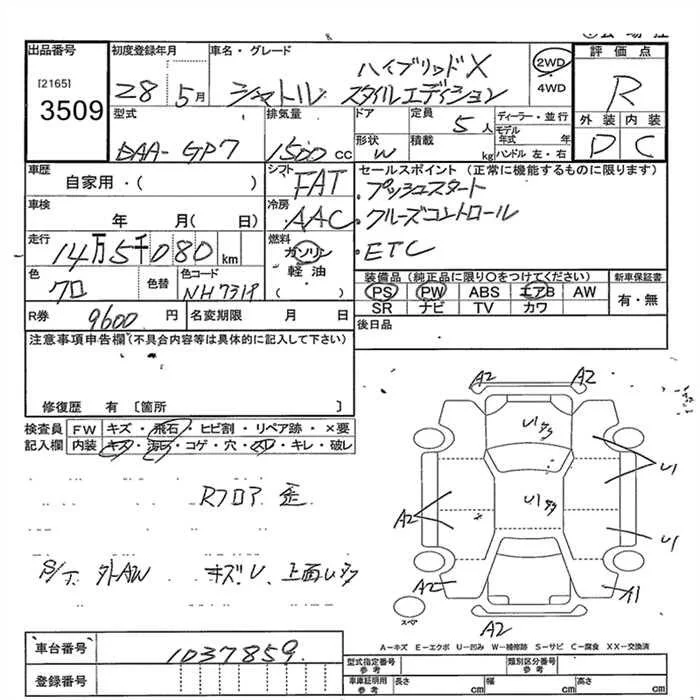 出品番号 初度登録年月 車名・グレード 評価点
[2165]
3509
28 5月 シャトル ハイブリッドX
スタイルエディション
2WD
4WD
R
型式 排気量 ドア 定員 ディーラー・並行
5人 モデル年式 年
外装 内装
DAA-GP7 1500cc 形状 W 積載 kg ハンドル 左・右
D C
車歴 シフト セールスポイント (正常に機能するものに限ります)
自家用・( ) FAT ・プッシュスタート
車検 冷房 ・クルーズコントロール
年 月( 日) AAC ・ETC
走行 燃料
14万5千080km ガソリン
軽油
( )
色 色替 色コード
クロ NH731P
装備品(純正品に限り○をつけてください) 新車保証書
PS PW ABS エアB AW 有・無
SR ナビ TV カワ
R券 9600円 名変期限 月 日 後日品
注意事項申告欄(不具合内容等は具体的に記入して下さい)
修復歴 有 〔箇所 〕
検査員 FW キズ・飛石・ヒビ割・リペア跡・×要
記入欄 内装 キズ・汚れ・コゲ・穴・スレ・キレ・破レ
Rフロア 歪
外AW キズU、上面Uタ
A2 A2
U1
U1
U1
A2 U1
A2 A1
スペア
A2
A-キズ E-エクボ U-凹み W-補修跡 S-サビ C-腐食 XX-交換済
車台番号 1037859
登録番号
型式指定番号 参考 類別区分番号 参考
車庫証明用 参考 長さ cm 幅 cm 高さ cm